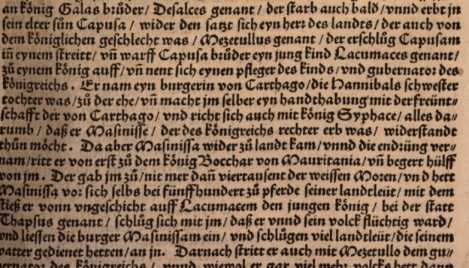 an könig Galas brůder/ Desalces genant/ der starb auch bald/ vnnd erbt jn
sein elter sün Capusa/ wider den satzt sich eyn herr des landts/ der auch von
dem königlichen geschlecht was/ Mezetullus genant/ der erschlůg Capusam
in eynem streitt/ vñ warff Capusa brůder eyn jung kind Lacumaces genant/
zů eynem könig auff/ vñ nent sich eynen pfleger des kinds/ vnd gubernator des
königreichs. Er nam eyn burgerin von Carthago/ die Hannibals schwester
tochter was/ zů der ehe/ vñ macht jm selber eyn handthabung mit der freünt⸗
schafft der von Carthago/ vnd richt sich auch mit könig Syphace/ alles da⸗
rumb/ daß er Masinisse/ der des königreichs rechter erb was/ widerstande
thůn möcht. Da aber Masinissa wider zů landt kam/ vnnd die endrüng ver⸗
nam/ ritt er von erst zů dem könig Bocchar von Mauritania/ vñ begert hülff
von jm. Der gab jm zů/ nit mer dañ viertausent der weissen Moren/ vnd hett
Masinissa vor sich selbs bei fünffhundert zů pferde seiner landtleüt/ mit dem
stieß er vonn vngeschicht auff Lacumacem den jungen könig/ bei der statt
Thapsus genant/ schlůg sich mit jm/ daß er vnnd sein volck flüchtig ward/
vnd liessen die burger Masinissam ein/ vnd schlůgen viel landtleüt/ die seinem
vatter gedienet hetten/ an jn. Darnach stritt er auch mit Mezetullo dem gu⸗
bernator des königreichs/ vnnd wiewol er gar viel mehr volcks hett dann